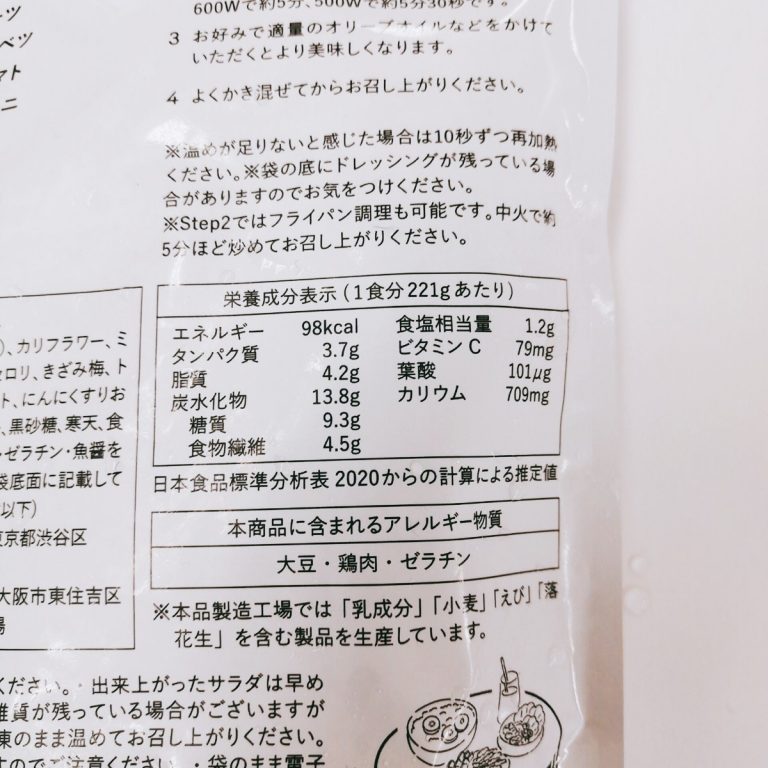 600Wで約5分、500Wで約5分30秒です。
3 お好みで適量のオリーブオイルなどをかけて
いただくとより美味しくなります。
4 よくかき混ぜてからお召し上がりください。
※温めが足りないと感じた場合は10秒ずつ再加熱
ください。※袋の底にドレッシングが残っている場
合がありますのでお気をつけください。
※Step2ではフライパン調理も可能です。中火で約
5分ほど炒めてお召し上がりください。
ベツ
マト
ニ
栄養成分表示(1食分221gあたり)
エネルギー 98kcal
タンパク質 3.7g
脂質 4.2g
炭水化物 13.8g
糖質 9.3g
食物繊維 4.5g
食塩相当量 1.2g
ビタミンC 79mg
葉酸 101μg
カリウム 709mg
日本食品標準分析表2020からの計算による推定値
本商品に含まれるアレルギー物質
大豆・鶏肉・ゼラチン
※本品製造工場では「乳成分」「小麦」「えび」「落
花生」を含む製品を生産しています。
)、カリフラワー、ミ
セロリ、きざみ梅、ト
ト、にんにくすりお
、黒砂糖、寒天、食
・ゼラチン・魚醤を
袋底面に記載して
以下)
東京都渋谷区
大阪市東住吉区
場
ください。・出来上がったサラダは早め
雑質が残っている場合がございますが
凍のまま温めてお召し上がりください。
すのでご注意ください。・袋のまま電子